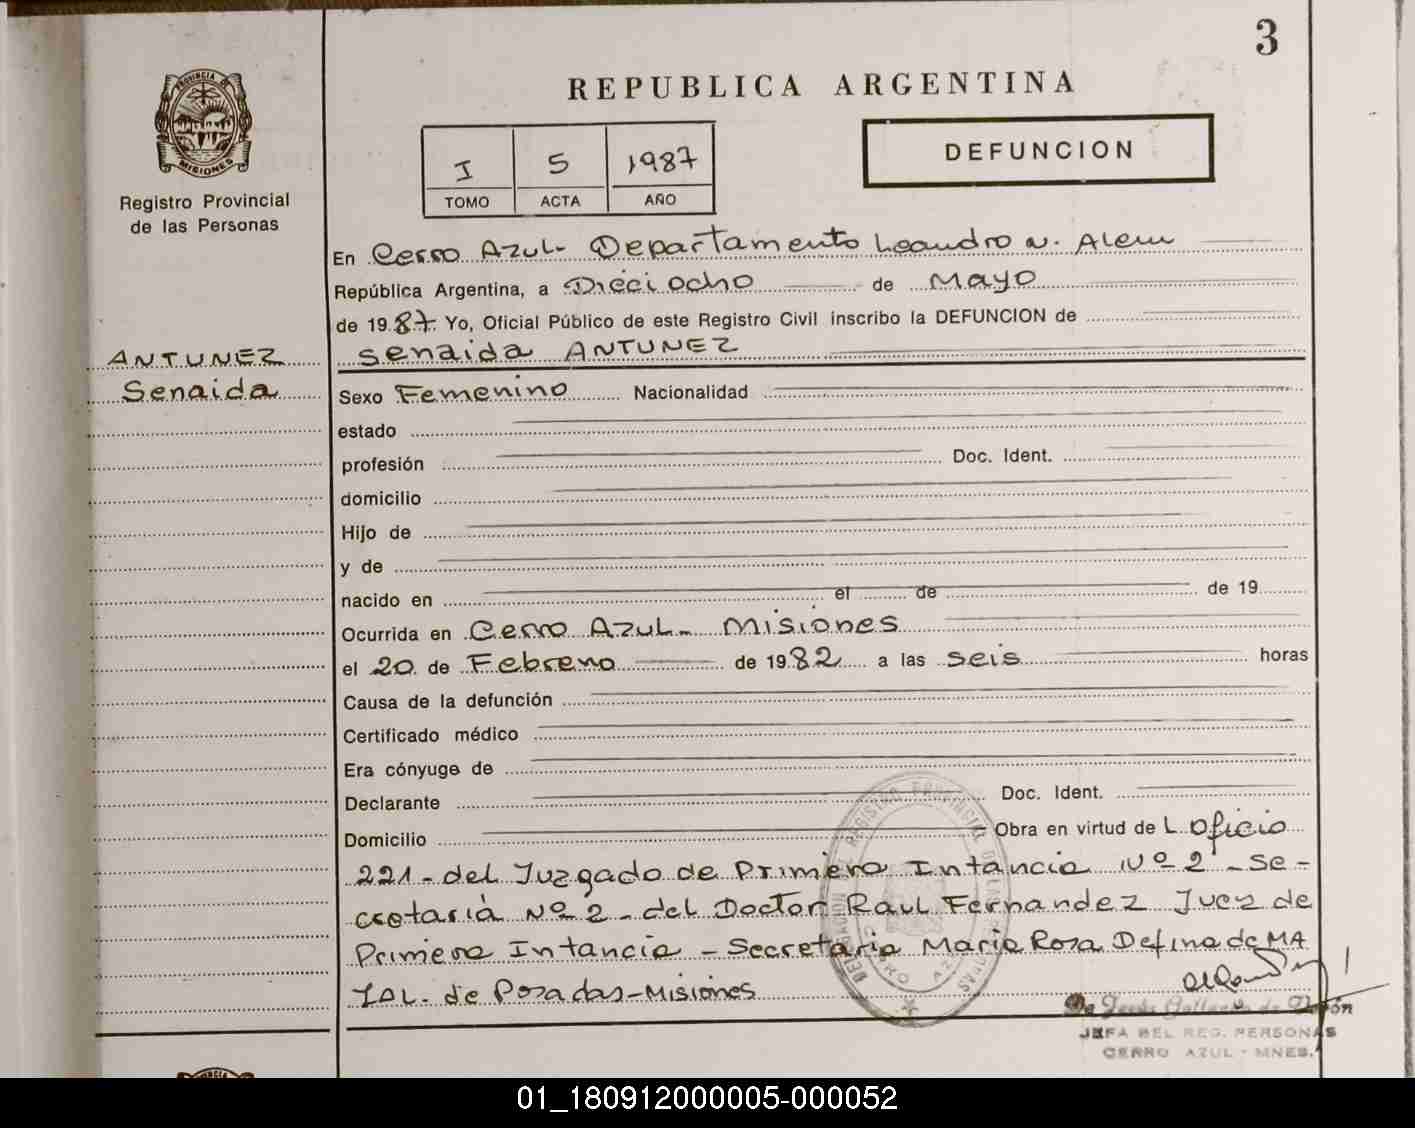 3
PROVINCIA DE
MISIONES
Registro Provincial
de las Personas
REPUBLICA ARGENTINA
I 5 1987
TOMO ACTA AÑO
DEFUNCION
En Cerro Azul- Departamento Leandro N. Alem
República Argentina, a Dieciocho de Mayo
de 1987. Yo, Oficial Público de este Registro Civil inscribo la DEFUNCION de
Senaida ANTUNEZ
ANTUNEZ
Senaida
Sexo Femenino Nacionalidad
estado
profesión Doc. Ident.
domicilio
Hijo de
y de
nacido en el de de 19
Ocurrida en Cerro Azul- Misiones
el 20 de Febrero de 1982 a las seis horas
Causa de la defunción
Certificado médico
Era cónyuge de
Declarante Doc. Ident.
Domicilio Obra en virtud de L Oficio
221- del Juzgado de Primera Intancia Nº 2 - Se-
cretaria Nº 2 - del Doctor Raul Fernandez Juez de
Primera Intancia - Secretaria Maria Rosa Defina de MA
ZAL- de Posadas-Misiones
JEFA DEL REG. PERSONAS
CERRO AZUL - MNES.
01_180912000005-000052